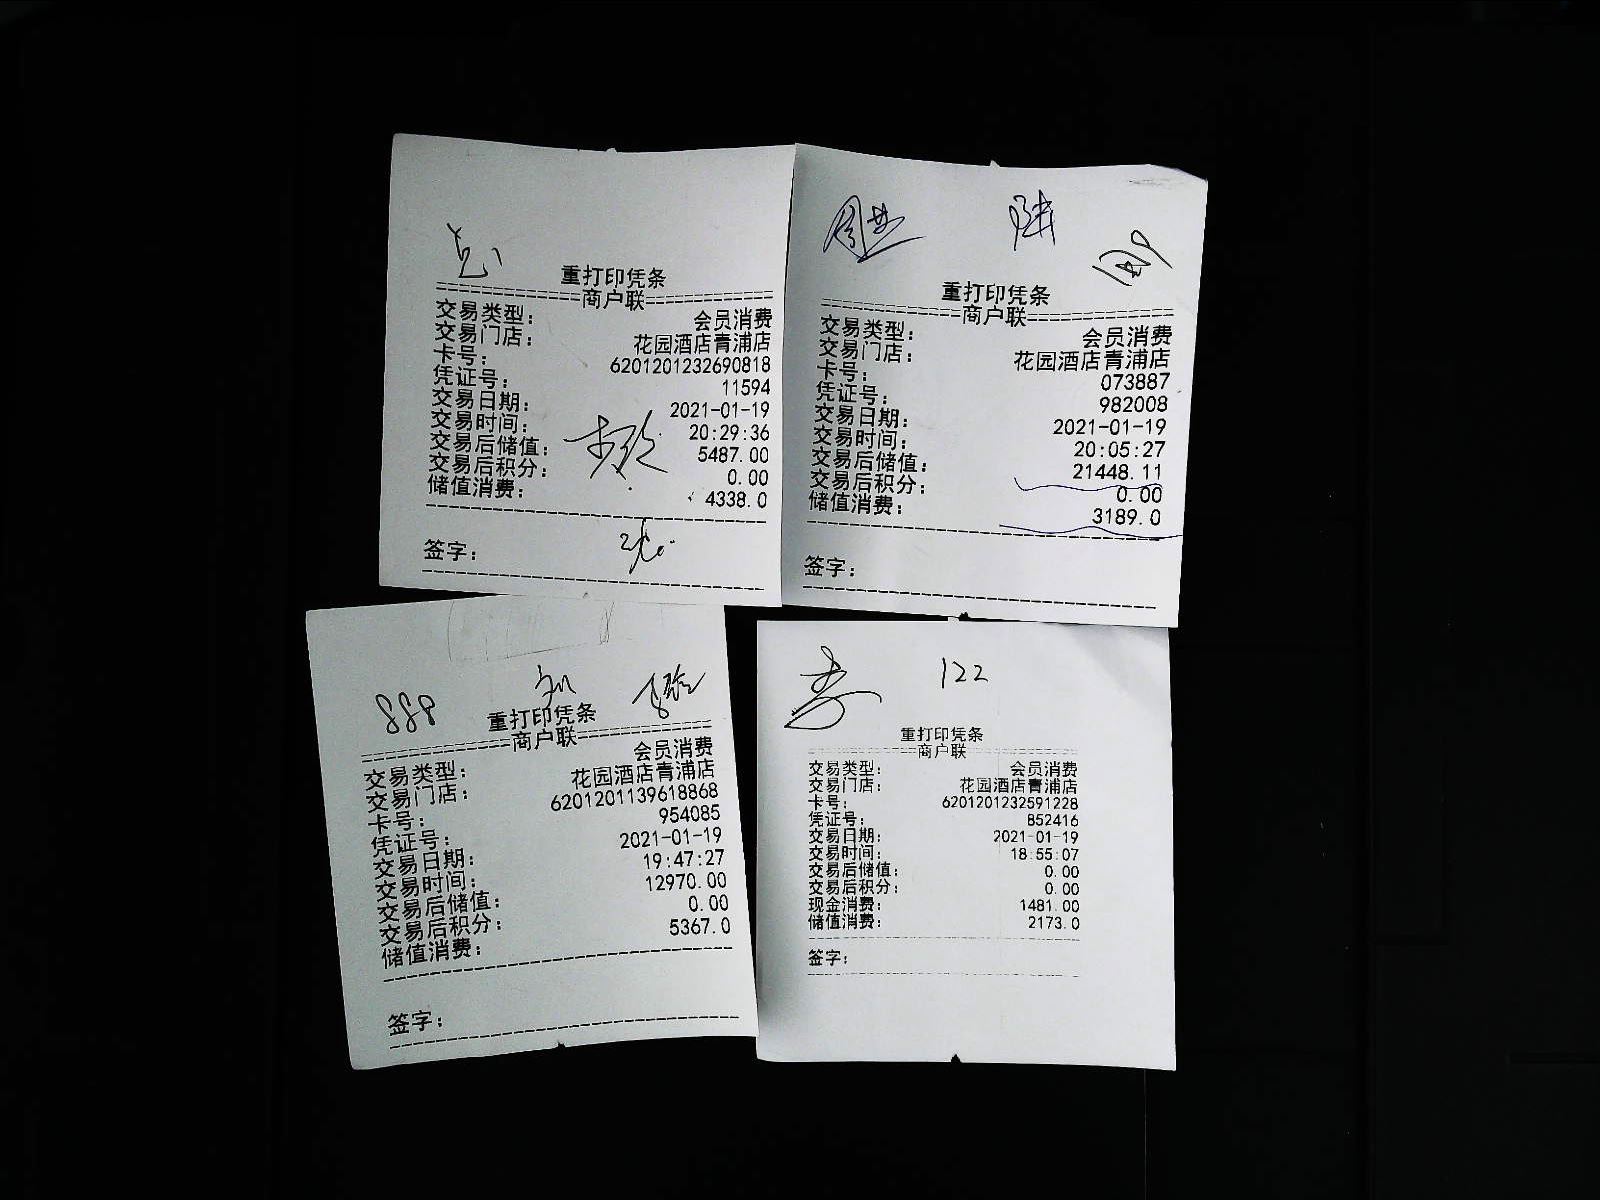 重打印凭条
商户联
交易类型: 会员消费
交易门店: 花园酒店青浦店
卡号: 6201201232690818
凭证号: 11594
交易日期: 2021-01-19
交易时间: 20:29:36
交易后储值: 5487.00
交易后积分: 0.00
储值消费: 4338.0
签字:
重打印凭条
商户联
交易类型: 会员消费
交易门店: 花园酒店青浦店
卡号: 073887
凭证号: 982008
交易日期: 2021-01-19
交易时间: 20:05:27
交易后储值: 21448.11
交易后积分: 0.00
储值消费: 3189.0
签字:
888
重打印凭条
商户联
交易类型: 会员消费
交易门店: 花园酒店青浦店
卡号: 6201201139618868
凭证号: 954085
交易日期: 2021-01-19
交易时间: 19:47:27
交易后储值: 12970.00
交易后积分: 0.00
储值消费: 5367.0
签字:
122
重打印凭条
商户联
交易类型: 会员消费
交易门店: 花园酒店青浦店
卡号: 6201201232591228
凭证号: 852416
交易日期: 2021-01-19
交易时间: 18:55:07
交易后储值: 0.00
交易后积分: 0.00
现金消费: 1481.00
储值消费: 2173.0
签字: